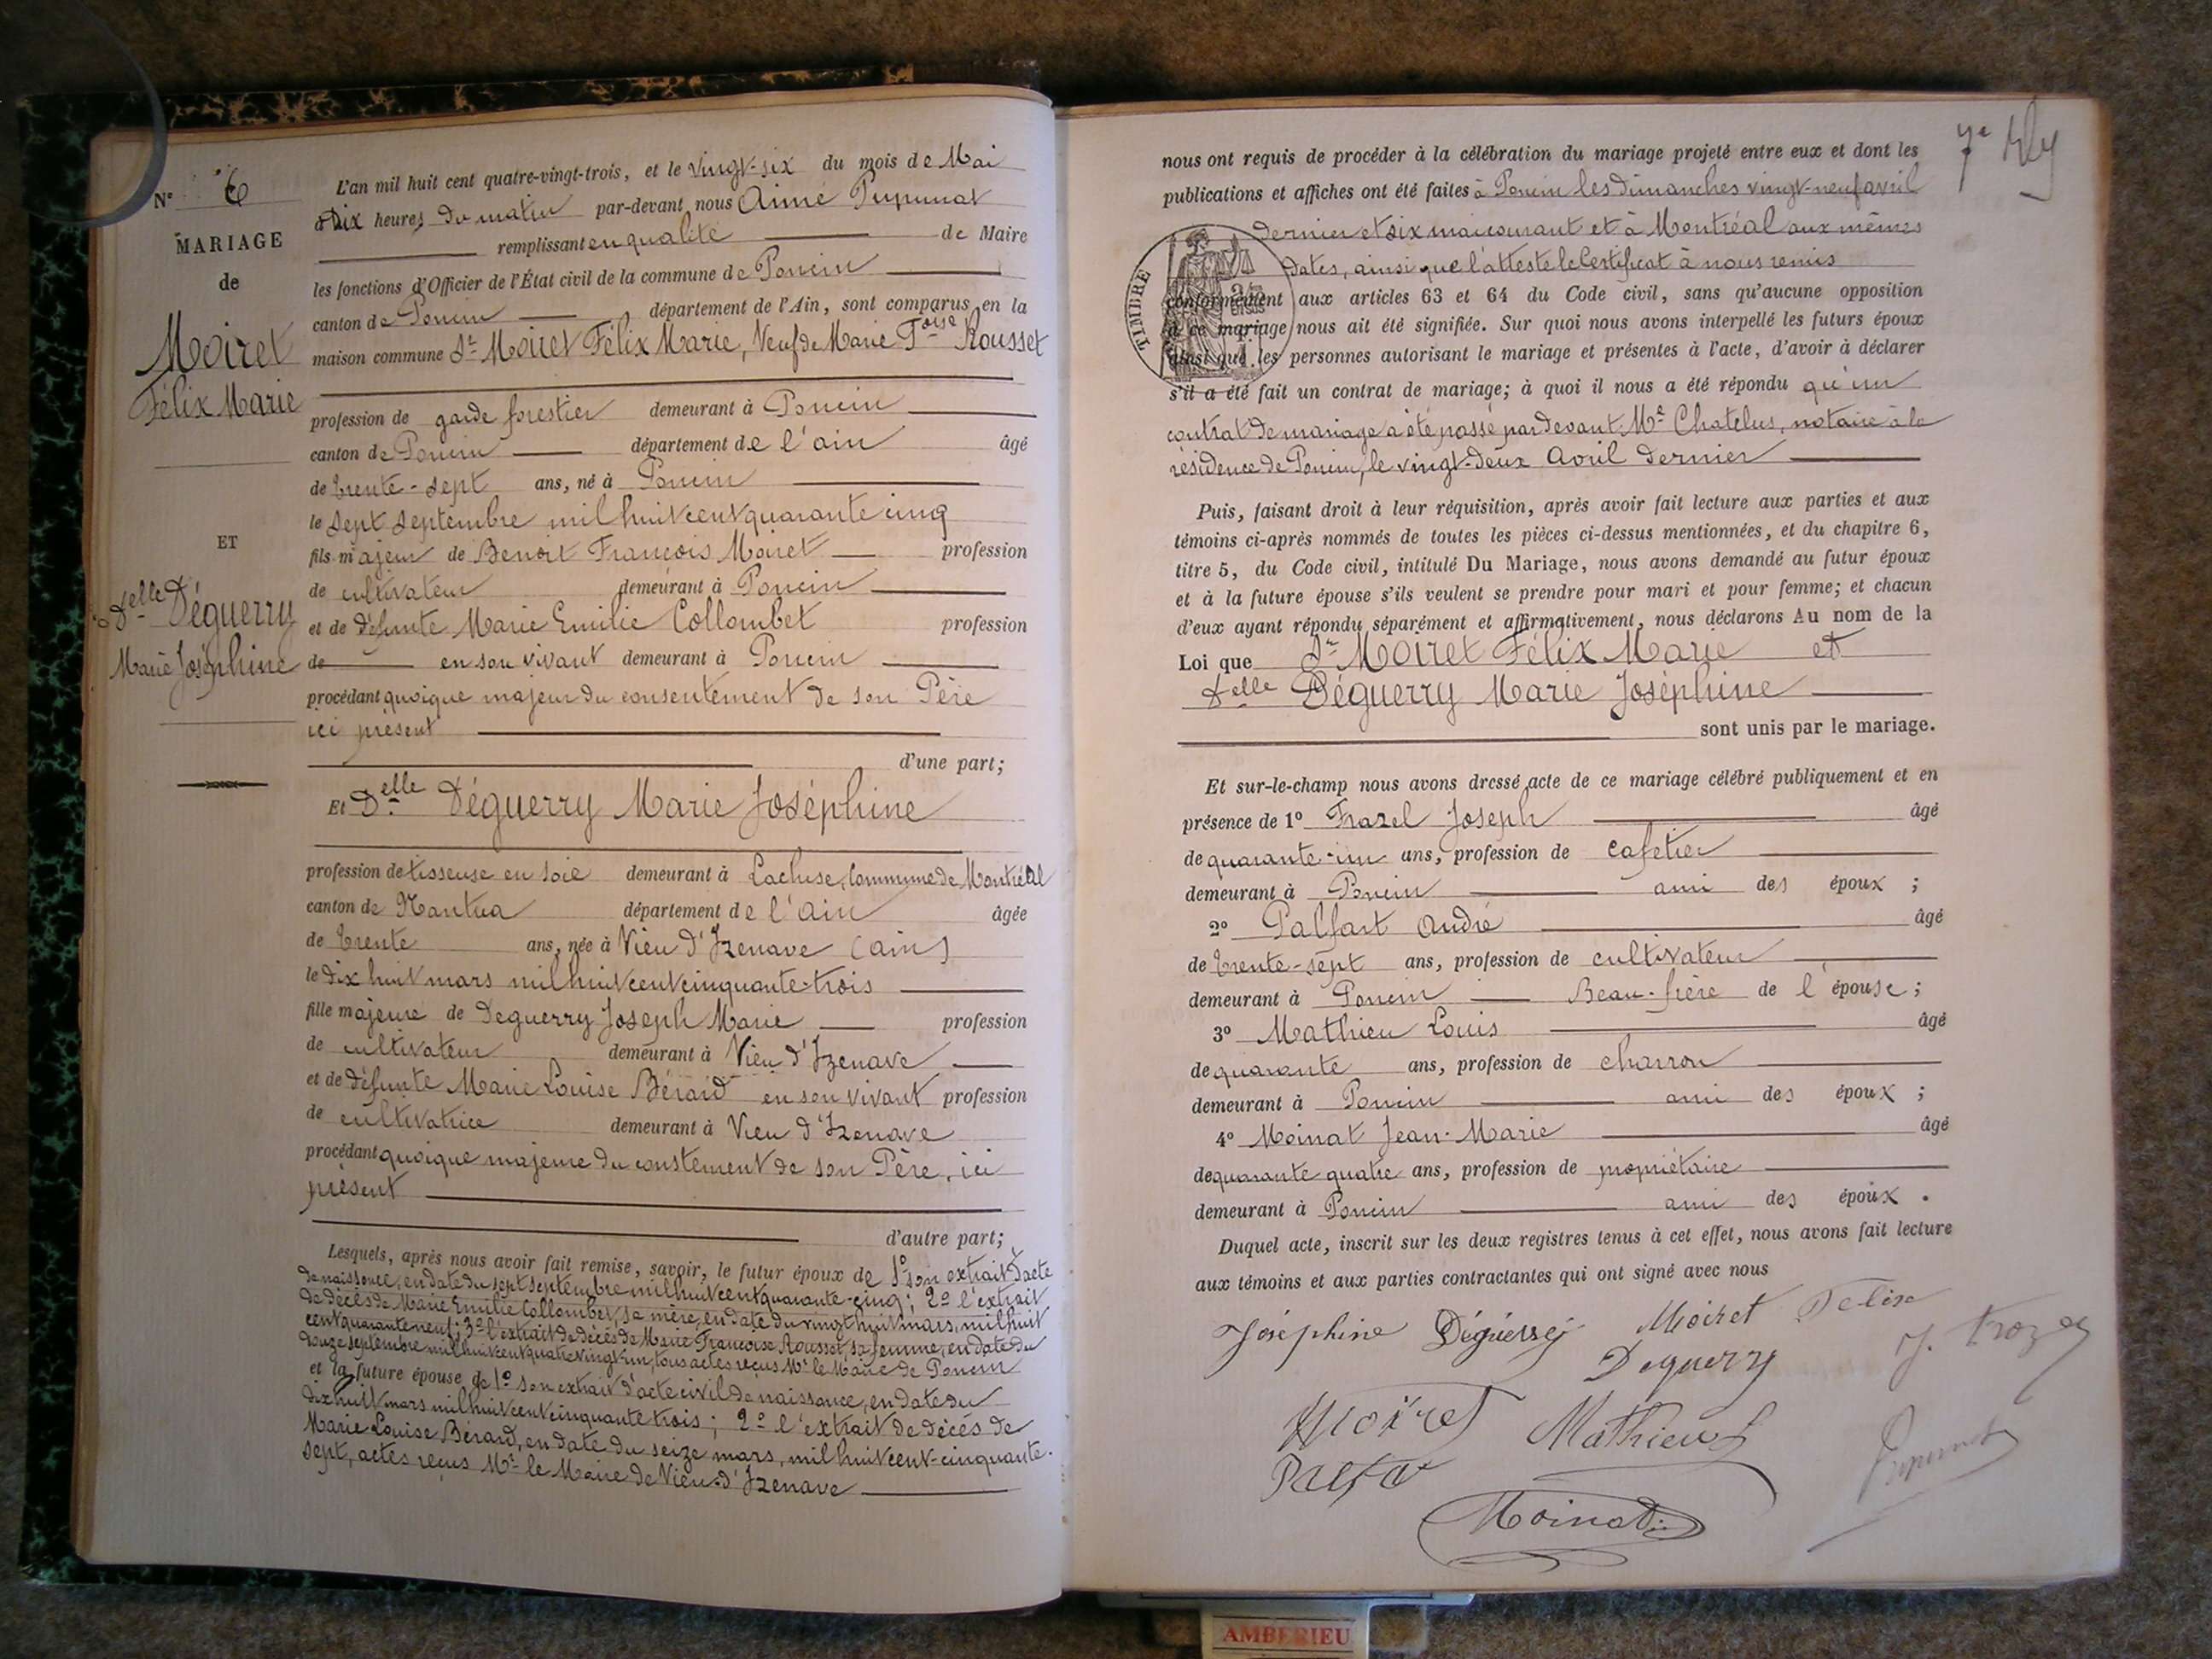 N° 6
MARIAGE
de
Moiret
Félix Marie
ET
Delle Déguerry
Marie Joséphine
L'an mil huit cent quatre-vingt-trois, et le vingt-six du mois de Mai
à Dix heures du matin par-devant nous Aimé Pupunat
remplissant en qualité de Maire
les fonctions d'Officier de l'État civil de la commune de Poncin
canton de Poncin département de l'Ain, sont comparus en la
maison commune Sr Moiret Félix Marie, Veuf de Marie Foise Rousset
profession de garde forestier demeurant à Poncin
canton de Poncin département de l'ain âgé
de trente-sept ans, né à Poncin
le sept septembre mil huit cent quarante cinq
fils majeur de Benoit François Moiret profession
de cultivateur demeurant à Poncin
et de défunte Marie Emilie Collombet profession
de en son vivant demeurant à Poncin
procédant quoique majeur du consentement de son Père
ici présent
d'une part;
Et Delle Déguerry Marie Joséphine
profession de tisseuse en soie demeurant à Lacluse, Commune de Montréal
canton de Nantua département de l'ain âgée
de trente ans, née à Vieu d'Izenave (ain)
le dix huit mars mil huit cent cinquante-trois
fille majeure de Deguerry Joseph Marie profession
de cultivateur demeurant à Vieu d'Izenave
et de défunte Marie Louise Bérard en son vivant profession
de cultivatrice demeurant à Vieu d'Izenave
procédant quoique majeure du constement de son Père, ici
présent
d'autre part;
Lesquels, après nous avoir fait remise, savoir, le futur époux de 1° son extrait d'acte
de naissance, en date du sept septembre mil huit cent quarante-cinq; 2° l'extrait
de décès de Marie Emilie Collombet, sa mère, en date du vingt huit mars, mil huit
cent quarante neuf; 3° l'extrait de décès de Marie Françoise Rousset, sa femme, en date du
douze septembre mil huit cent quatre vingt-un, tous actes reçus Mr le Maire de Poncin
et la future épouse de 1° son extrait d'acte civil de naissance, en date du
dix huit mars mil huit cent cinquante trois; 2° l'extrait de décès de
Marie Louise Bérard, en date du seize mars, mil huit cent-cinquante-
sept, actes reçus Mr le Maire de Vieu-d'Izenave
7e
nous ont requis de procéder à la célébration du mariage projeté entre eux et dont les
publications et affiches ont été faites à Poncin les dimanches vingt-neuf avril
dernier et six mai courant et à Montréal aux mêmes
dates, ainsi que l'atteste le Certificat à nous remis
TIMBRE
conformément aux articles 63 et 64 du Code civil, sans qu'aucune opposition
à ce mariage nous ait été signifiée. Sur quoi nous avons interpellé les futurs époux
ainsi que les personnes autorisant le mariage et présentes à l'acte, d'avoir à déclarer
s'il a été fait un contrat de mariage; à quoi il nous a été répondu qu'un
contrat de mariage a été passé par devant Me Chatelus, notaire à la
résidence de Poncin, le vingt-deux Avril dernier
Puis, faisant droit à leur réquisition, après avoir fait lecture aux parties et aux
témoins ci-après nommés de toutes les pièces ci-dessus mentionnées, et du chapitre 6,
titre 5, du Code civil, intitulé Du Mariage, nous avons demandé au futur époux
et à la future épouse s'ils veulent se prendre pour mari et pour femme; et chacun
d'eux ayant répondu séparément et affirmativement, nous déclarons Au nom de la
Loi que Sr Moiret Félix Marie et
Delle Déguerry Marie Joséphine
sont unis par le mariage.
Et sur-le-champ nous avons dressé acte de ce mariage célébré publiquement et en
présence de 1° Frazel Joseph âgé
de quarante-un ans, profession de cafetier
demeurant à Poncin ami des époux ;
2° Palfart André âgé
de trente-sept ans, profession de cultivateur
demeurant à Poncin Beau-frère de l'épouse;
3° Mathieu Louis âgé
de quarante ans, profession de charron
demeurant à Poncin ami des époux ;
4° Moinat Jean-Marie âgé
de quarante quatre ans, profession de propriétaire
demeurant à Poncin ami des époux .
Duquel acte, inscrit sur les deux registres tenus à cet effet, nous avons fait lecture
aux témoins et aux parties contractantes qui ont signé avec nous
Joséphine Déguerrey Moiret Félix
Deguerry
Moiret Mathieu
Moinat
AMBERIEU